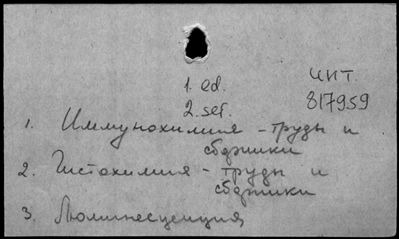 1. ed.
2. sef.
ЧИТ.
817959
1. Иммунохимия - труды и
сборники
2. Гистохимия - труды и
сборники
3. Люминесценция